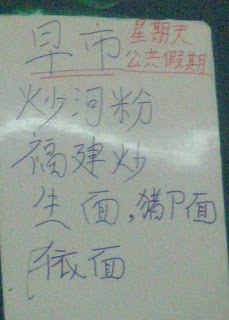 早市
星期天
公共假期
炒河粉
福建炒
生面,猪 面
依面